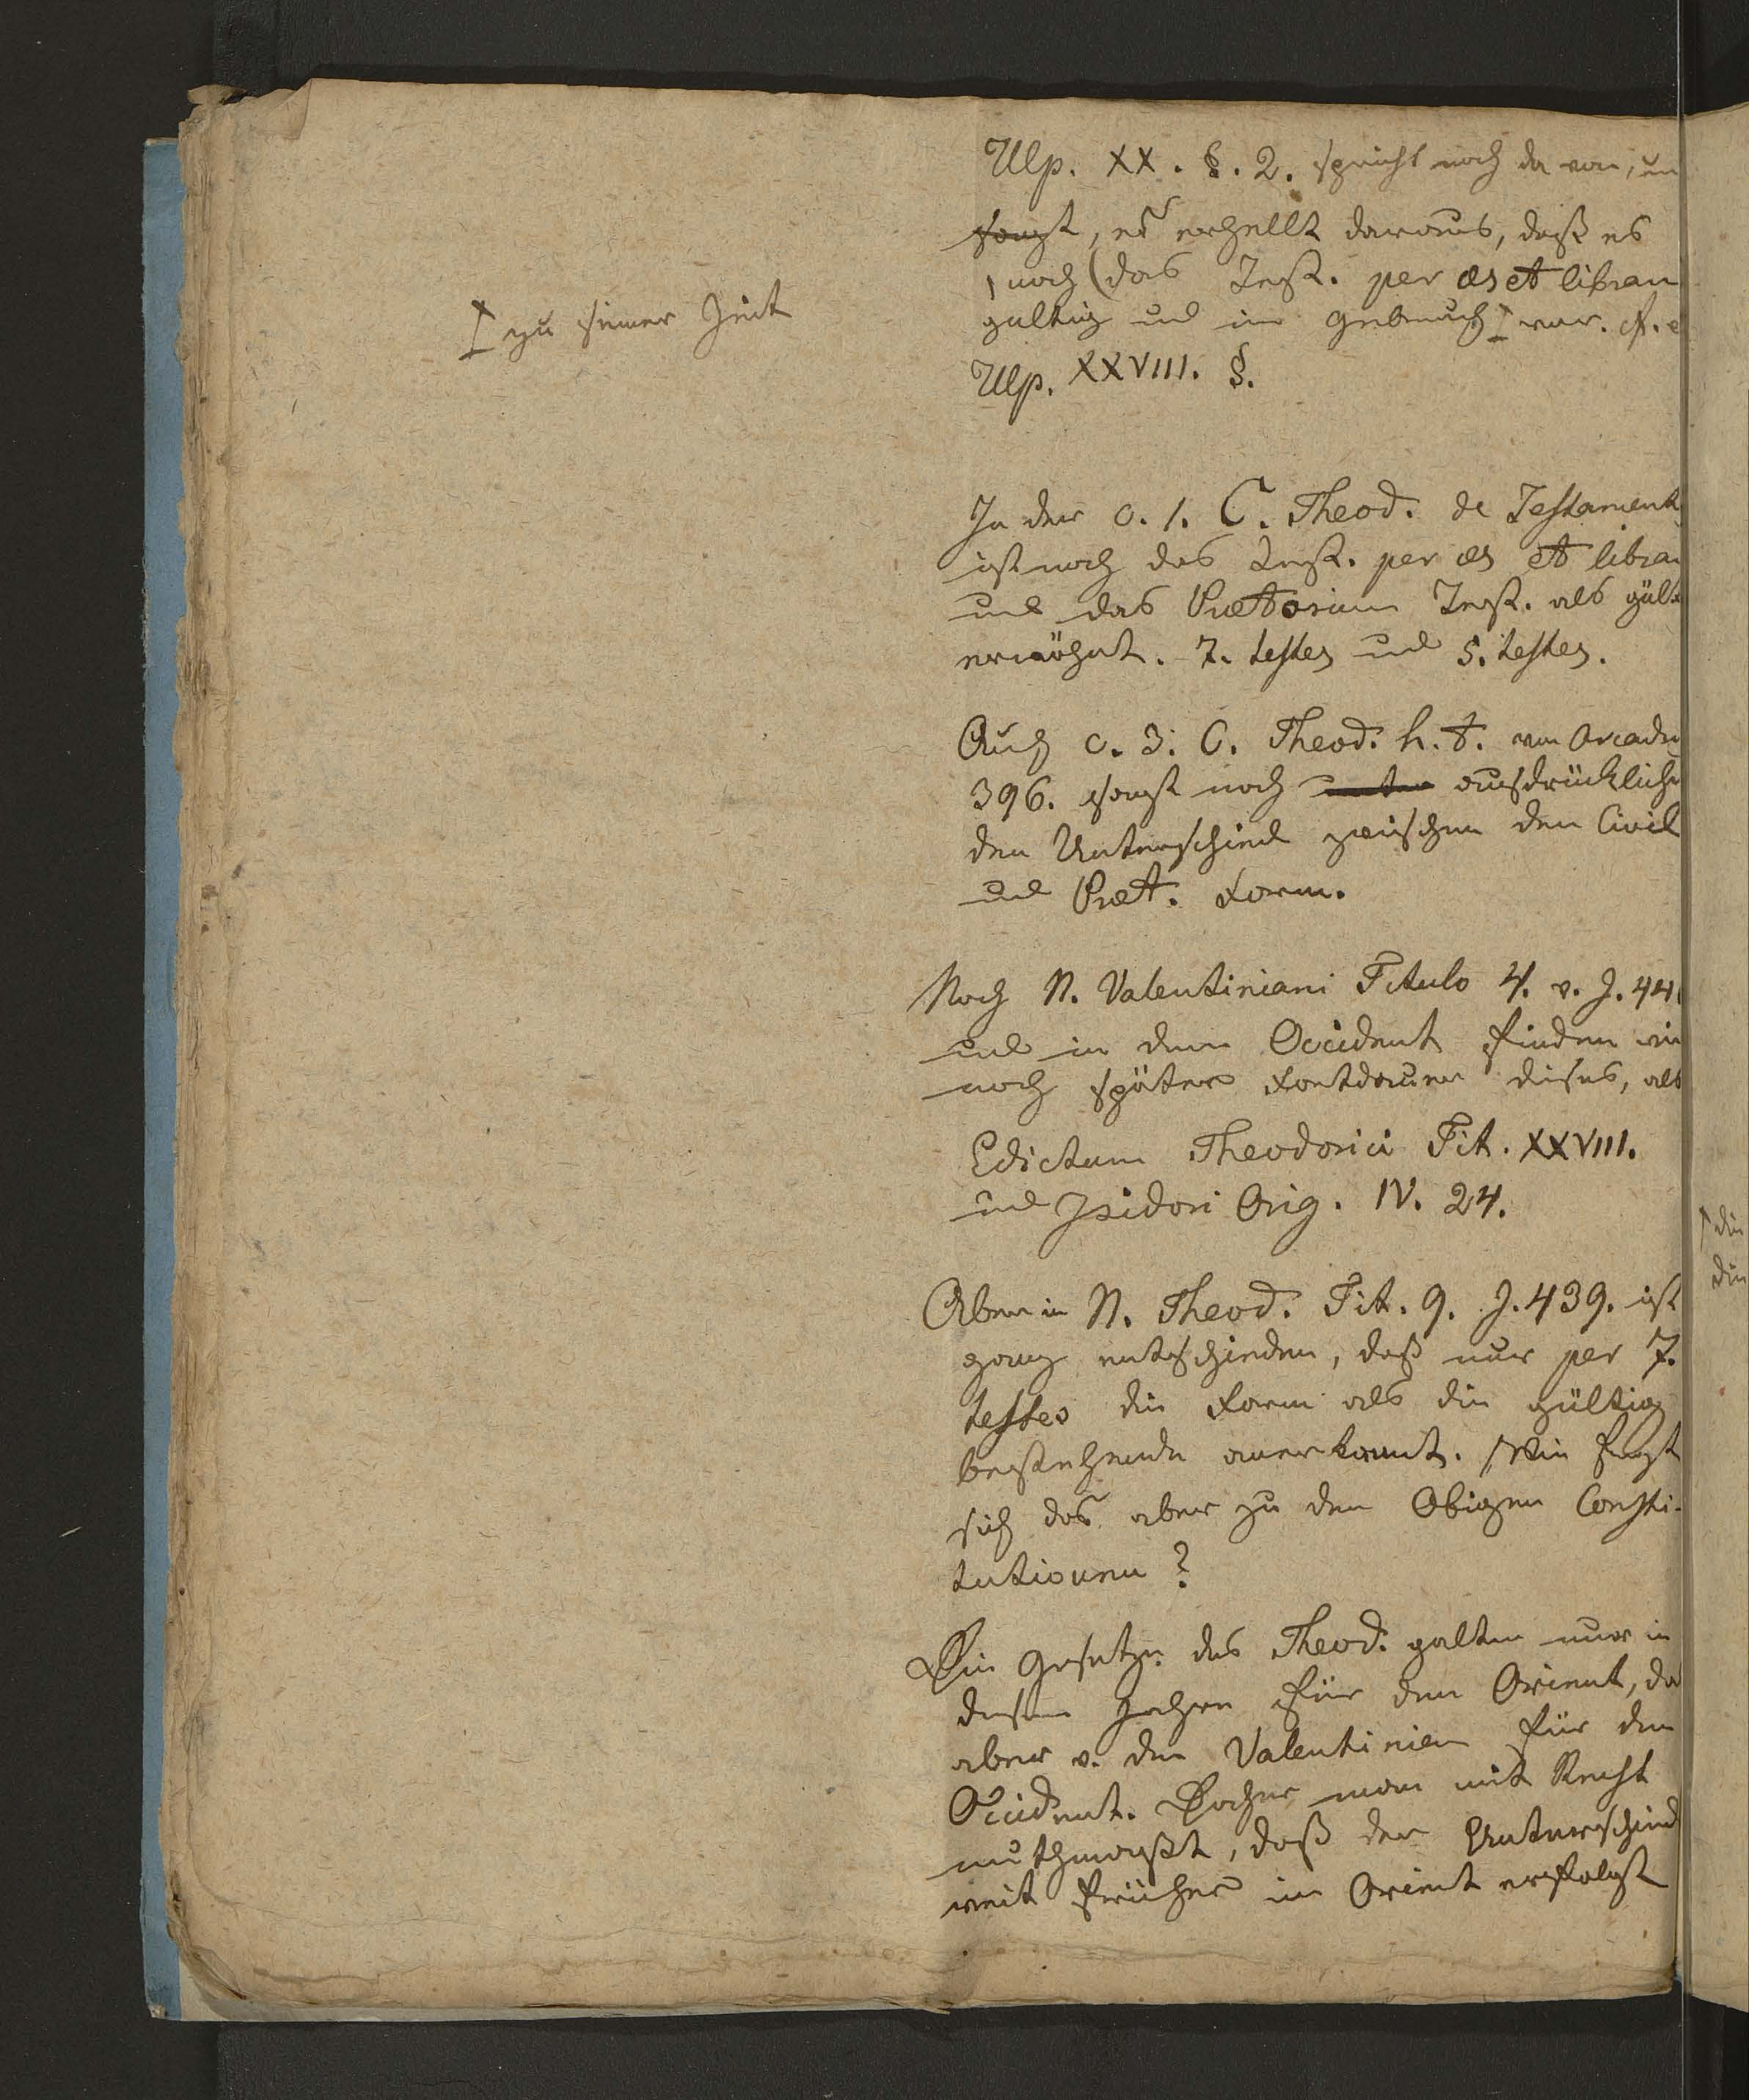 Ulp. XX. §. 2. spricht noch da von, un
sagt, es erhellt daraus, daß es
noch (das Test. per æs et libram
gültig und im Gebrauch war. cf. e
zu seiner Zeit
Ulp. XXVIII. §.
In der c. 1. C. Theod. de Testament
ist noch das Test. per æs et libra
und das Prætorium Test. als gült
erwähnt. 7. testes und 5. testes.
Auch c. 3. C. Theod. h. t. von Arcadi
396. sagt noch ausdrücklich
den Unterschied zwischen den Civil
und Præt. Form.
Nach N. Valentiniani Titulo 4. v. J. 44
und in dem Occident finden wir
noch später Fortdauer dieses, als
Edictum Theodorici Tit. XXVIII.
und Isidori Orig. IV. 24.
Aber in N. Theod. Tit. 9. J. 439. ist
ganz entschieden, daß nur per 7.
testes die Form als die gültig
bestehende anerkannt. Wie fügt
sich das aber zu den Obigen Consti-
tutionen?
Die Gesetze des Theod. galten nur in
diesen Jahren für den Orient, da
aber v. den Valentinian für den
Occident. Daher man mit Recht
muthmaßt, daß der Unterschied
weit früher im Orient erfolgt
die
die